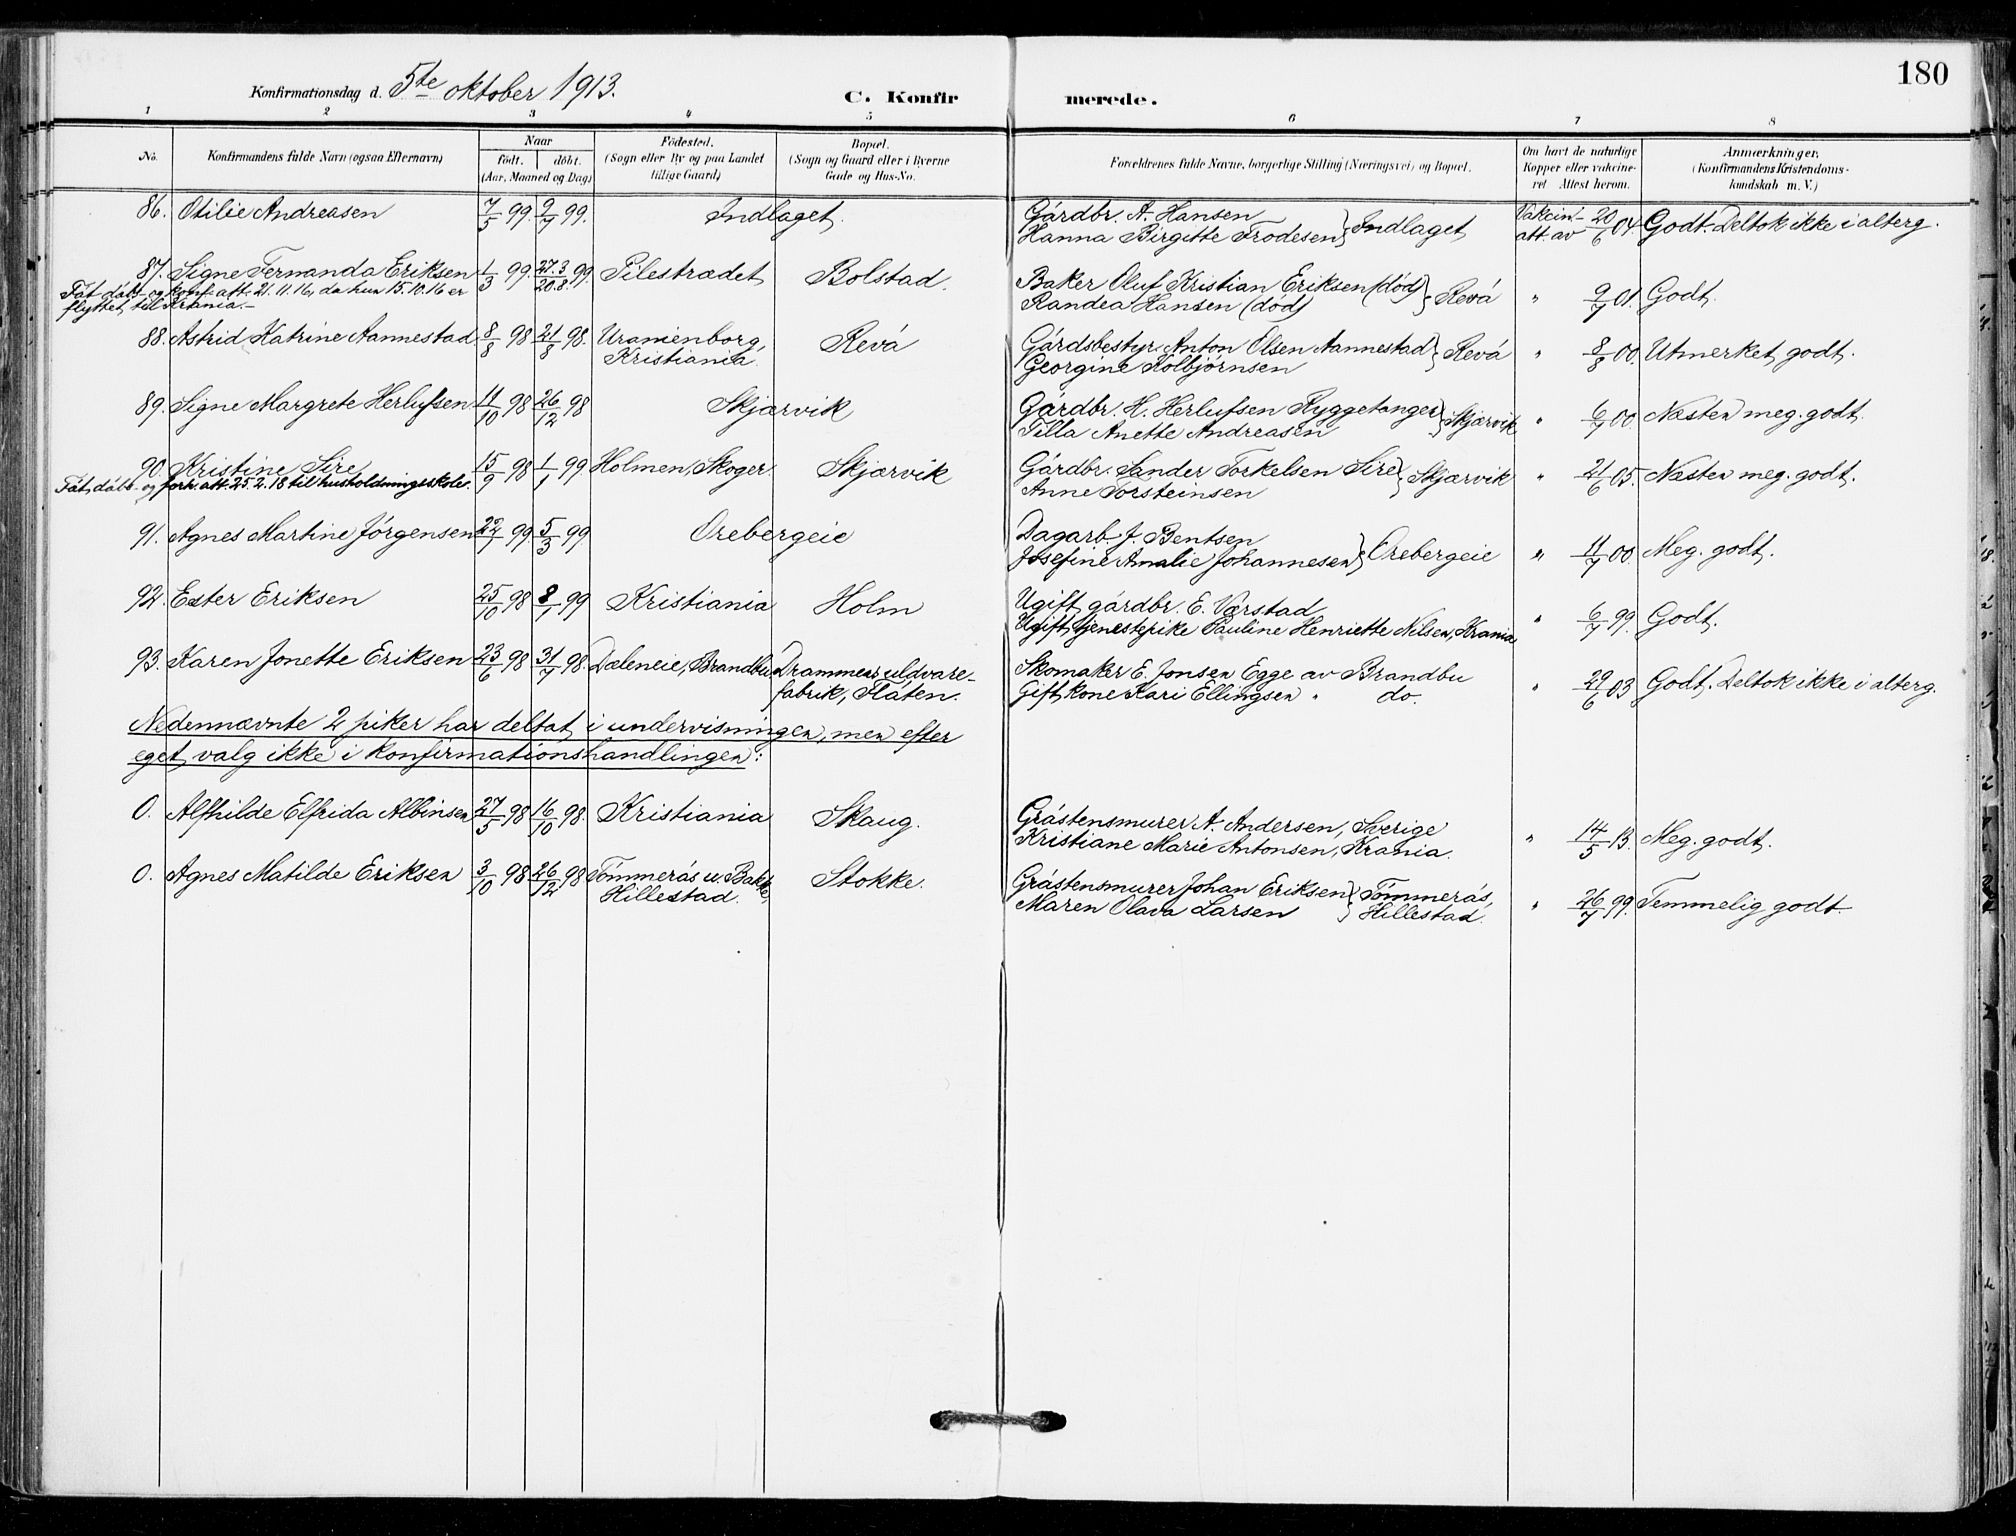 180
Konfirmationsdag d. 5te oktober 1913.
C. Konfirmerede.
1 2 3 4 5 6 7 8
No. Konfirmandens fulde Navn (ogsaa Efternavn) Naar født. døbt. (Aar, Maaned og Dag) Fødested. (Sogn eller By og paa Landet tillige Gaard) Bopæl. (Sogn og Gaard eller i Byerne Gade og Hus-No. Forældrenes fulde Navne, borgerlige Stilling (Næringsvei) og Bopæl. Om havt de naturlige Kopper eller vakcineret Attest herom. Anmærkninger. (Konfirmandens Kristendomskundskab m. V.)
86. Otilie Andreasen 7/5 99. 9/7 99. Indlaget. Gårdbr. A. Hansen Hanna Birgitte Frodesen } Indlaget Vakcin. att. av 20/6 04. Godt. Deltok ikke i alterg.
87. Signe Fernanda Eriksen 1/3 99. 27.3/20.8. 99. Pilestrædet Bolstad. Baker Oluf Kristian Eriksen (død) Randea Hansen (død) } Revå " 9/7 01. Godt.
Fåt dåbs- og konf. att. 21.11.16, da hun 15.10.16 er
flyttet til Krania.-
88. Astrid Katrine Aannestad 8/8 98 21/8 98. Uranienborg, Kristiania. Revå Gårdsbestyr. Anton Olsen Aannestad Georgine Kolbjørnsen } Revå " 8/8 00. Utmerket godt.
89. Signe Margrete Herlufsen 11/10 98 26/12 98 Skjærvik Gårdbr. H. Herlufsen Ryggetangen Tilla Anette Andreasen } Skjærvik " 6/7 00. Næsten meg. godt.
90. Kristine Sire 15/9 98 1/1 99 Holmen, Skoger Skjærvik Gårdbr. Sander Torkelsen Sire Anne Torsteinsen } Skjærvik " 21/6 05. Næsten meg. godt.
Fåt dåbs- og forh. att. 25.2.18 til husholdningsskole.
91. Agnes Martine Jørgensen 22/1 99. 5/3 99. Orebergeie Dagarb. J. Bentsen Josefine Amalie Johannesen } Orebergeie " 11/7 00. Meg. godt.
92. Ester Eriksen 25/10 98 8/1 99 Kristiania Holm Ugift gårdbr. E. Vårstad Ugift tjenestepike Pauline Henriette Nilsen, Krania " 6/7 99. Godt.
93. Karen Jonette Eriksen 23/6 98 31/7 98. Dæleneie, Brandbu Drammens uldvarefabrik, Flåten. Skomaker E. Jonsen Egge av Brandbu Gift kone Kari Ellingsen " do. " 29/6 03 Godt. Deltok ikke i alterg.
Nedennævnte 2 piker har deltat i undervisningen, men efter
eget valg ikke i konfirmationshandlingen:
0. Alfhilde Elfrida Albinsen 27/5 98 16/10 98. Kristiania Skaug. Gråstensmurer A. Andersen, Sverige Kristiane Marie Antonsen, Krania. " 14/5 13. Meg. godt.
0. Agnes Matilde Eriksen 3/10 98 26/12 98 Tømmerås u. Bakke, Hillestad. Stokke. Gråstensmurer Johan Eriksen Maren Olava Larsen } Tømmerås, Hillestad. " 26/7 99. Temmelig godt.